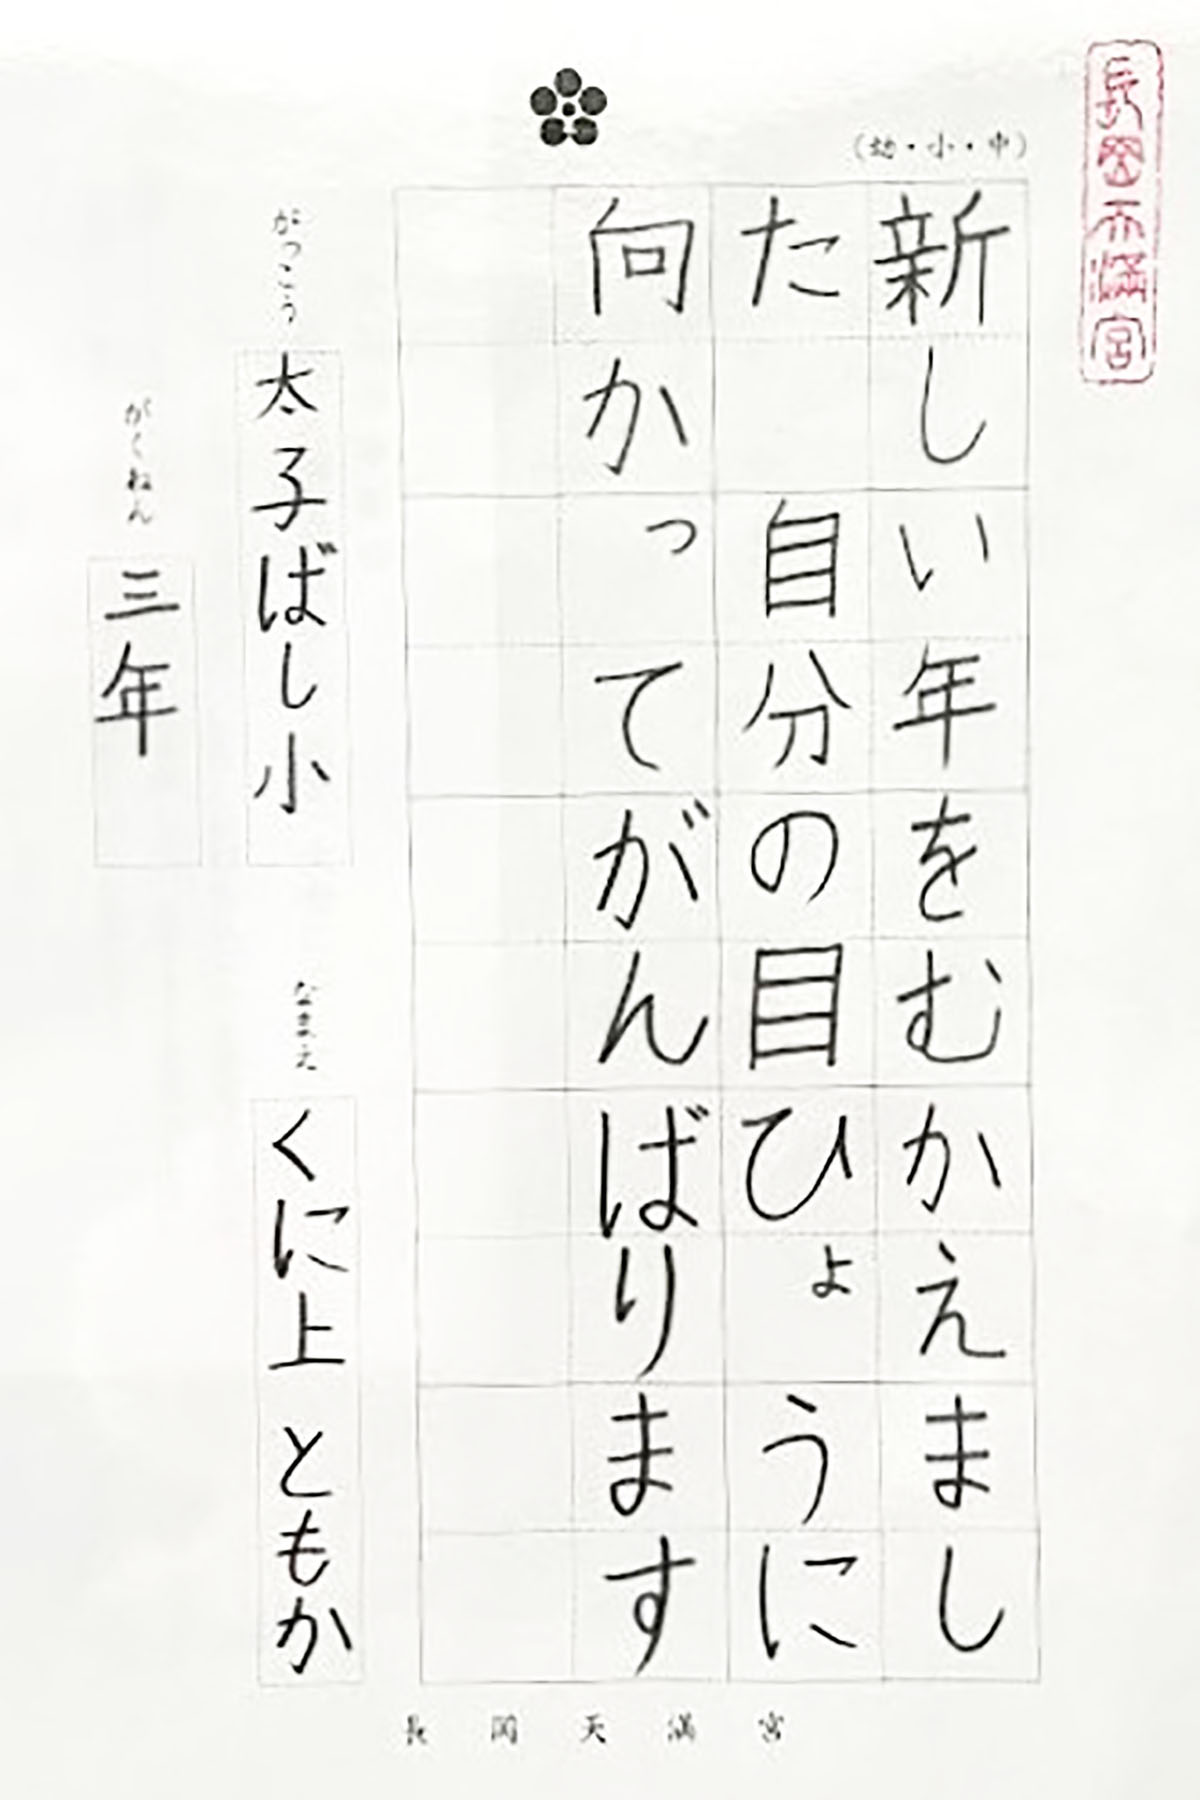 長岡天満宮
(幼・小・中)
新しい年をむかえまし
た 自分の目ひょうに
向かってがんばります
がっこう 太子ばし小
なまえ くに上 ともか
がくねん 三年
長岡天満宮